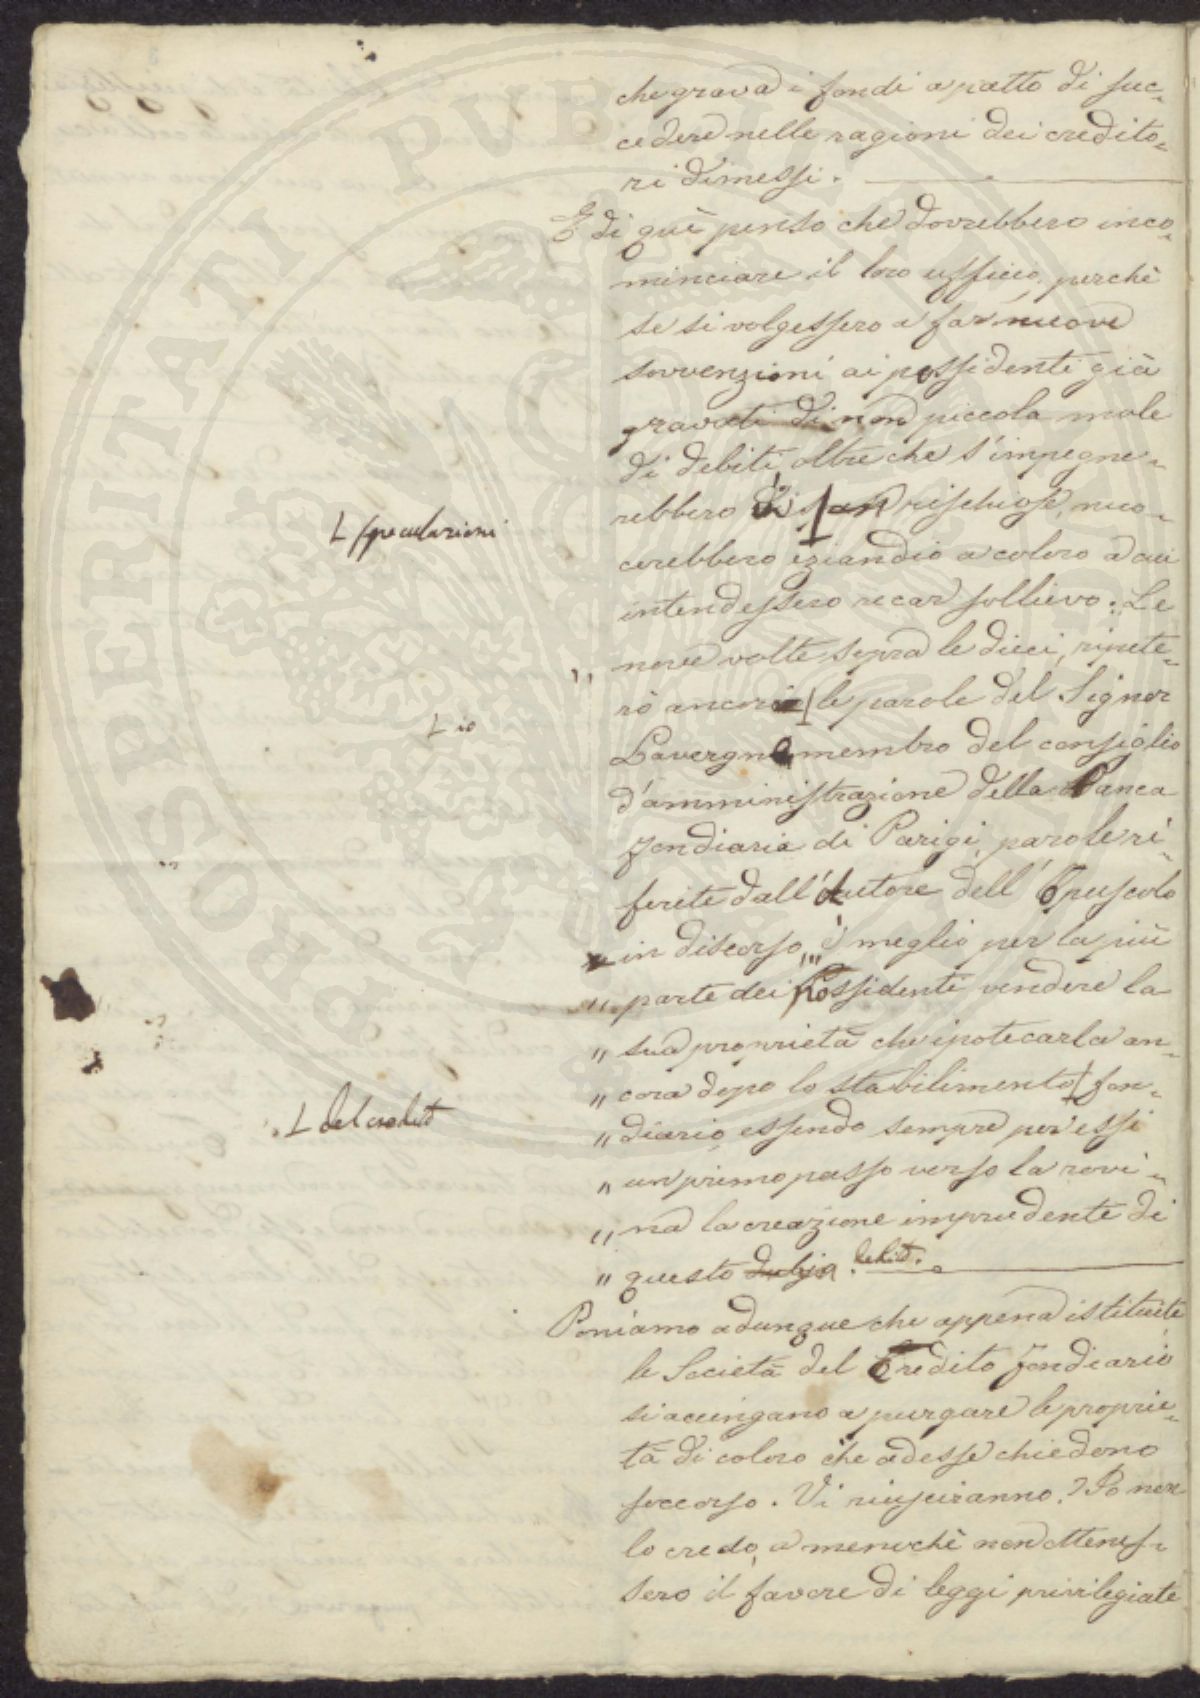 che grava i fondi a patto di suc=
cedere nelle ragioni dei credito=
ri dimessi.
E di quì penso che dovrebbero inco=
minciare il loro ufficio, perchè
se si volgessero a far nuove
sovvenzioni ai possidenti già
gravati di non piccola mole
di debiti oltre che s'impegne=
rebbero in rischiose, nuo=
L speculazioni
cerebbero eziandio a coloro a cui
intendessero recar sollievo. Le
nove volte sopra le dieci, ripete=
rò ancor le parole del Signor
L io
Lavergne membro del consiglio
d'amministrazione della Banca
fondiaria di Parigi, parole ri=
ferite dall'Autore dell'Opuscolo
in discorso, è meglio per la più
" parte dei Possidenti vendere la
" sua proprietà che ipotecarla an=
" cora dopo lo stabilimento fon=
L del credito
" diario, essendo sempre per essi
" un primo passo verso la rovi=
" na la creazione imprudente di
" questo debito.
Poniamo adunque che appena istituite
le Società del Credito fondiario
si accingano a purgare le proprie=
tà di coloro che ad esse chiedono
soccorso. Vi riusciranno? Io non
lo credo, a menochè non ottenes=
sero il favore di leggi privilegiate
PROSPERITATI PUBLICAE